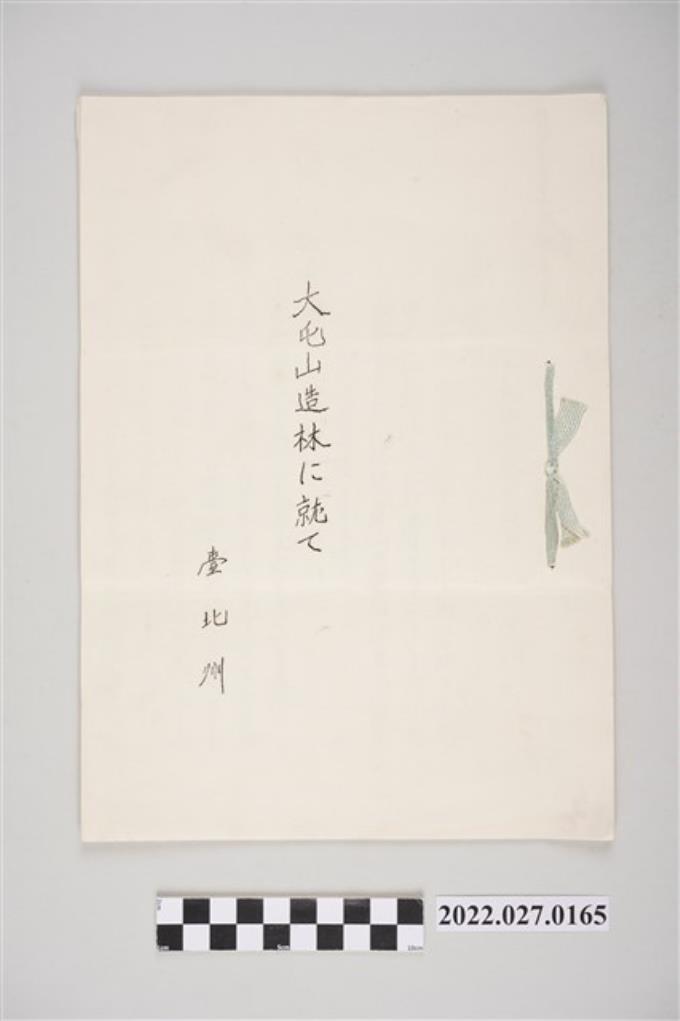 大屯山造林に就て
臺北州
2022.027.0165
5cm
10cm